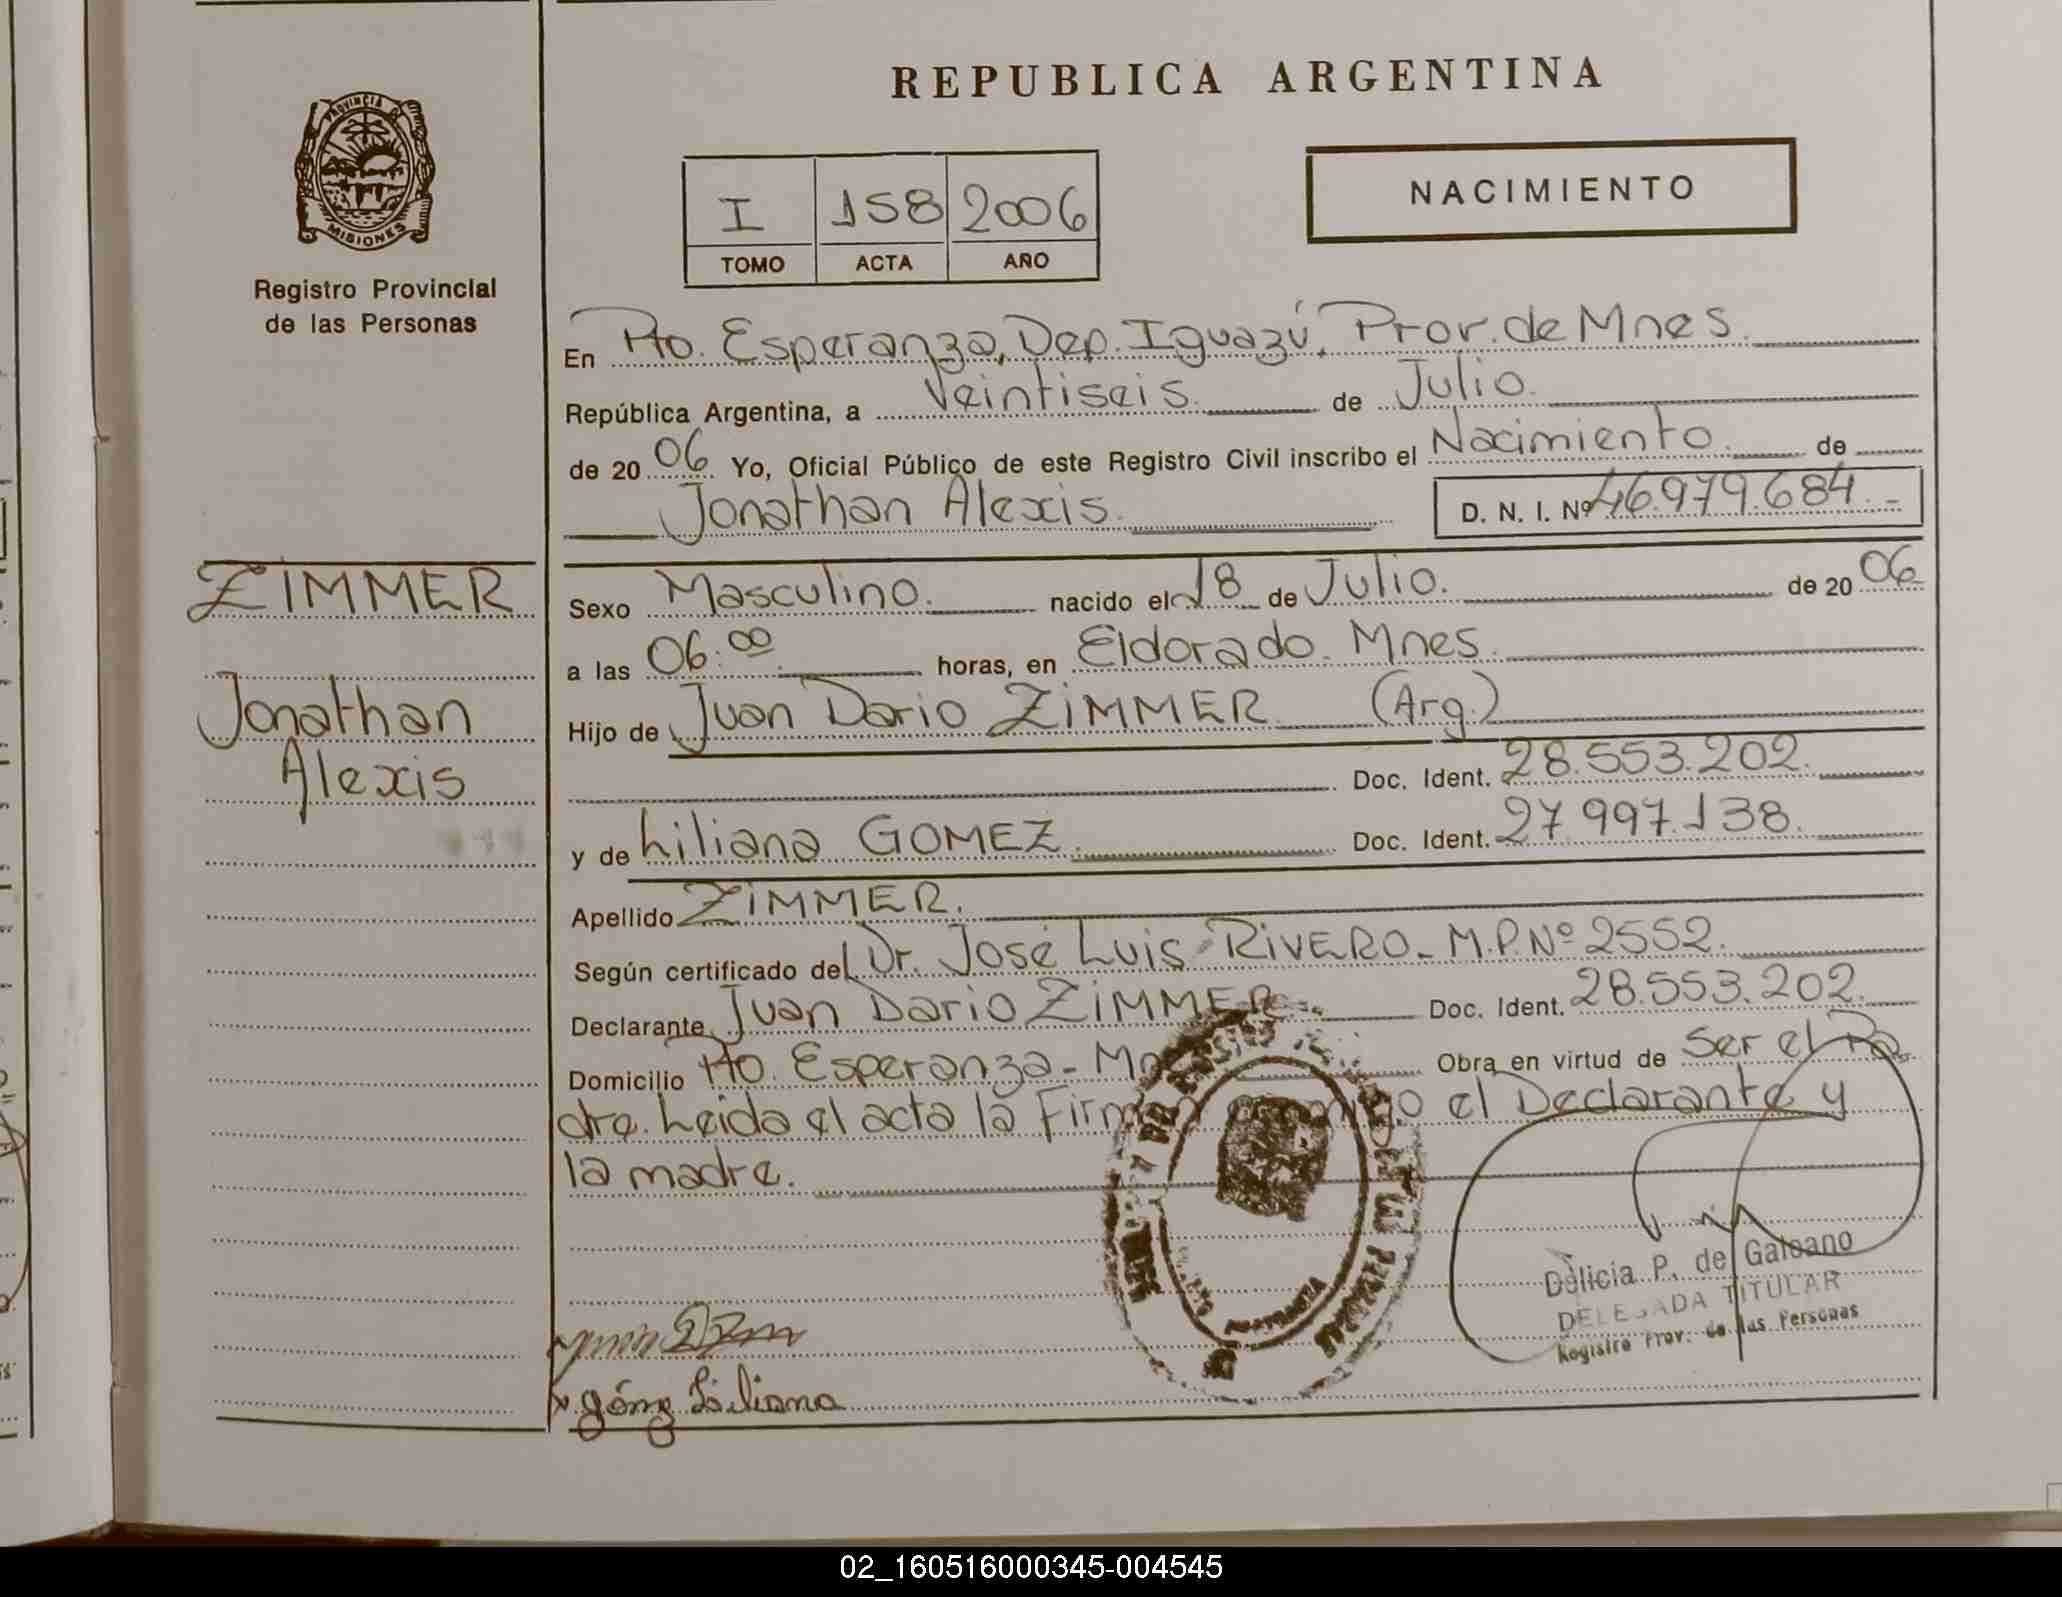 REPUBLICA ARGENTINA
PROVINCIA DE
MISIONES
Registro Provincial
de las Personas
I 158 2006
TOMO ACTA AÑO
NACIMIENTO
En Pto. Esperanza, Dep. Iguazú, Prov. de Mnes.
República Argentina, a Veintiseis. de Julio.
de 20 06 Yo, Oficial Público de este Registro Civil inscribo el Nacimiento. de
Jonathan Alexis. D. N. I. Nº 46.979.684.-
ZIMMER
Jonathan
Alexis
Sexo Masculino. nacido el 18 de Julio. de 20 06
a las 06:00 horas, en Eldorado. Mnes.
Hijo de Juan Dario ZIMMER (Arg.)
Doc. Ident. 28.553.202.
y de Liliana GOMEZ. Doc. Ident. 27.997.138.
Apellido ZIMMER.
Según certificado del Dr. José Luis RIVERO. M.P.Nº 2552.
Declarante Juan Dario ZIMMER Doc. Ident. 28.553.202.
Domicilio Pto. Esperanza - Obra en virtud de Ser el Pa
dre. Leida el acta la Firman conmigo el Declarante y
la madre.
Delicia P. de Galeano
DELEGADA TITULAR
Registro Prov. de las Personas
Liliana
02_160516000345-004545